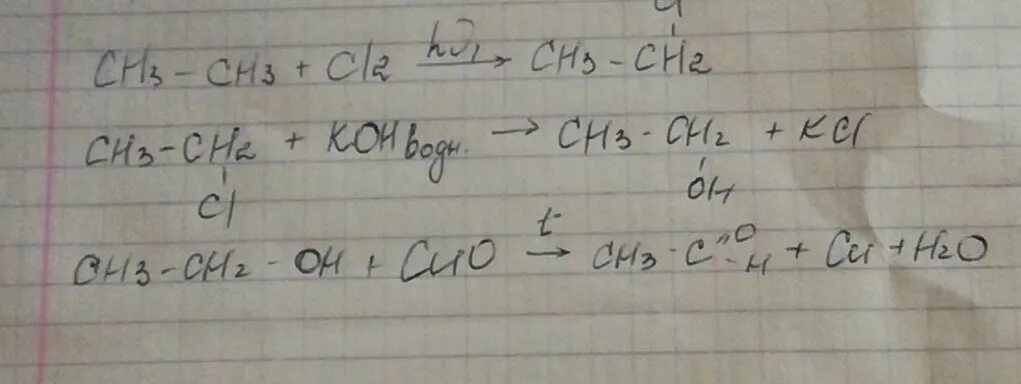 CH3 - CH3 + Cl2 hν → CH3 - CH2
CH3 - CH2 + KOH водн. → CH3 - CH2 + KCl
Cl OH
CH3 - CH2 - OH + CuO t → CH3 - C = O - H + Cu + H2O